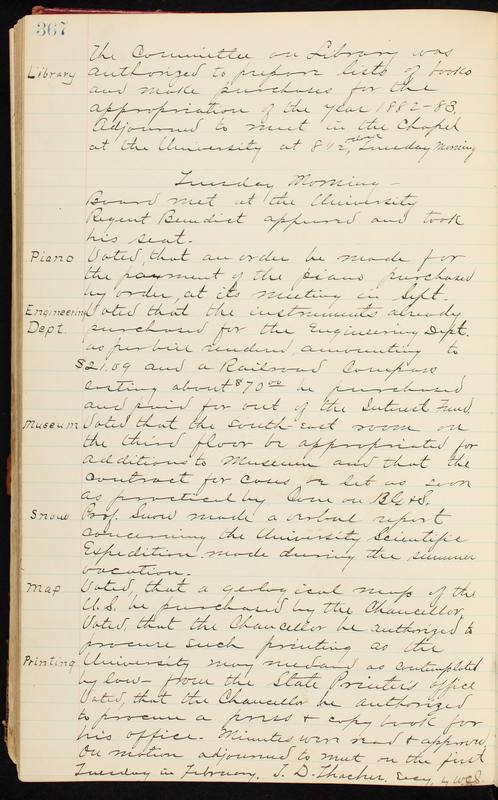 367
The Committee on Library was
Library authorized to prepare lists of books
and make purchases for the
appropriation of the year 1882-83.
Adjourned to meet in the Chapel
at the University at 8 1/2, Tuesday Morning
Tuesday Morning -
Board met at the University
Regent Benedict appeared and took
his seat.
Piano Voted, that an order be made for
the payment of the piano purchased
by order, at its meeting in Sept.
Engineering Voted that the instruments already
Dept. purchased for the Engineering Dept.
as per bill rendered, amounting to
$21.09 and a Railroad Compass
costing about $70.00 be purchased
and paid for out of the Interest Fund.
Museum Voted that the South-East room on
the third floor be appropriated for
additions to Museum and that the
contract for cases be let as soon
as practical by Com on B G & S.
Snow Prof. Snow made a verbal report
concerning the University Scientific
Expedition made during the summer
vacation.
Map Voted, that a geological map of the
U.S. be purchased by the Chancellor.
Voted, that the Chancellor be authorized to
procure such printing as the
Printing University may need and as contemplated
by law - from the State Printers Office
Voted, that the Chancellor be authorized
to procure a press & copy book for
his office. Minutes were read & approved.
On motion adjourned to meet on the first
Tuesday in February. T. D. Thacher, Secy, by WCS.